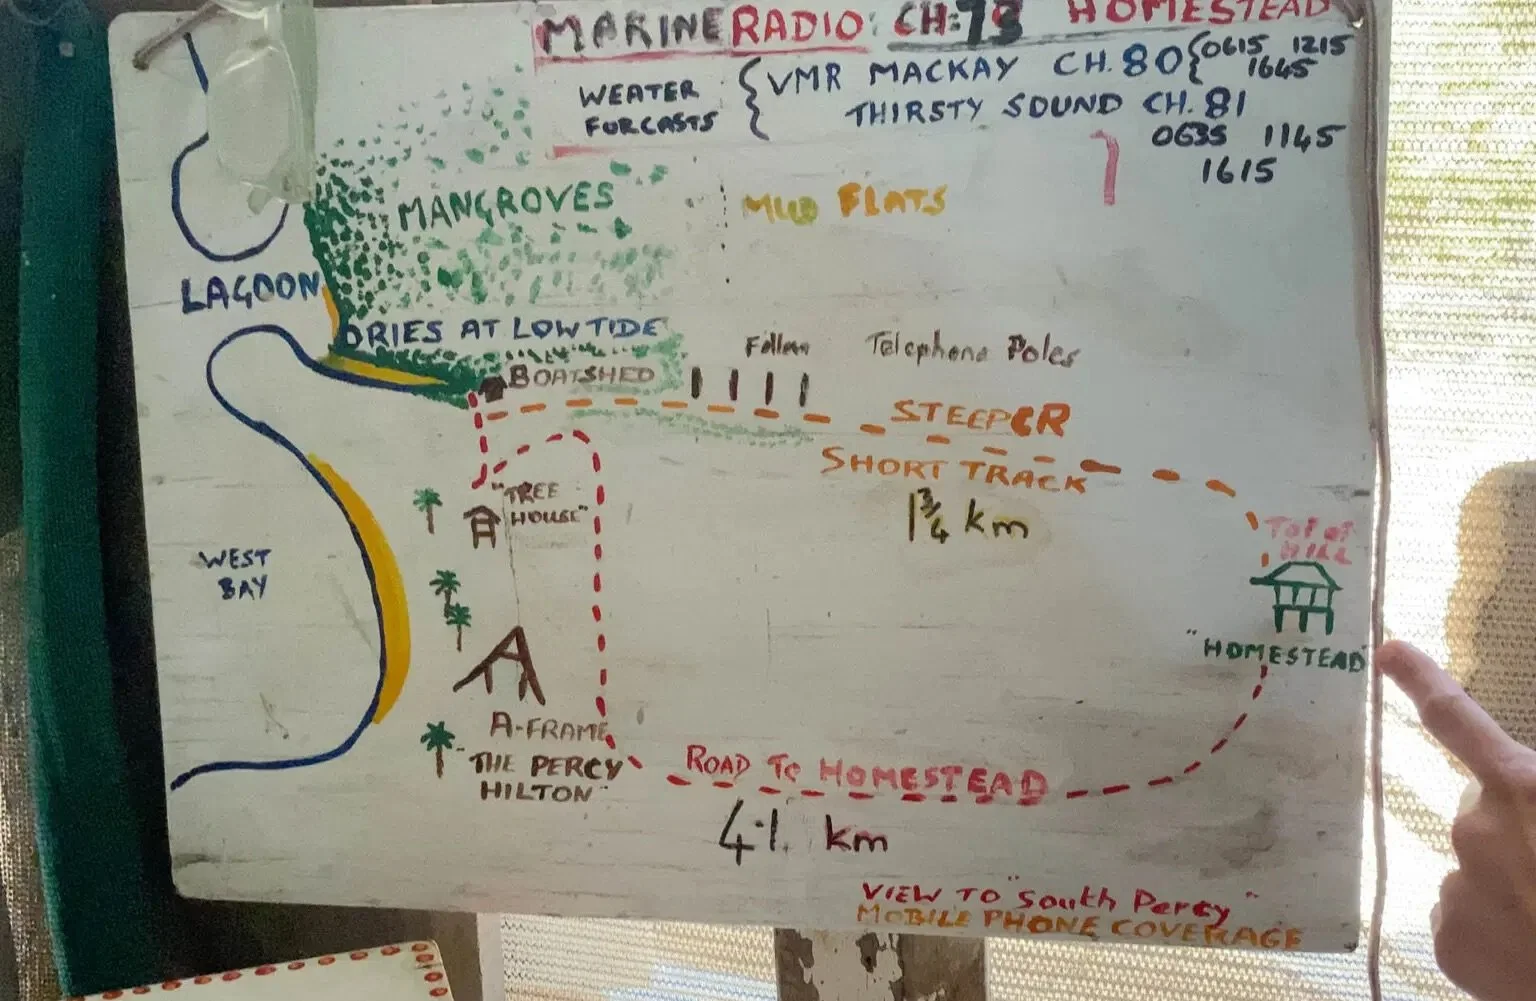 MARINE RADIO: CH:73 HOMESTEAD
WEATER FORCASTS
VMR MACKAY CH. 80 0615 1215 1645
THIRSTY SOUND CH. 81
0635 1145
1615
MANGROVES
MUD FLATS
LAGOON
DRIES AT LOW TIDE
BOATSHED
Follow Telephone Poles
STEEPER
SHORT TRACK
1 3/4 km
"TREE HOUSE"
TOP OF HILL
"HOMESTEAD"
WEST BAY
A-FRAME
"THE PERCY HILTON"
ROAD TO HOMESTEAD
4·1 km
VIEW TO "South Percy"
MOBILE PHONE COVERAGE